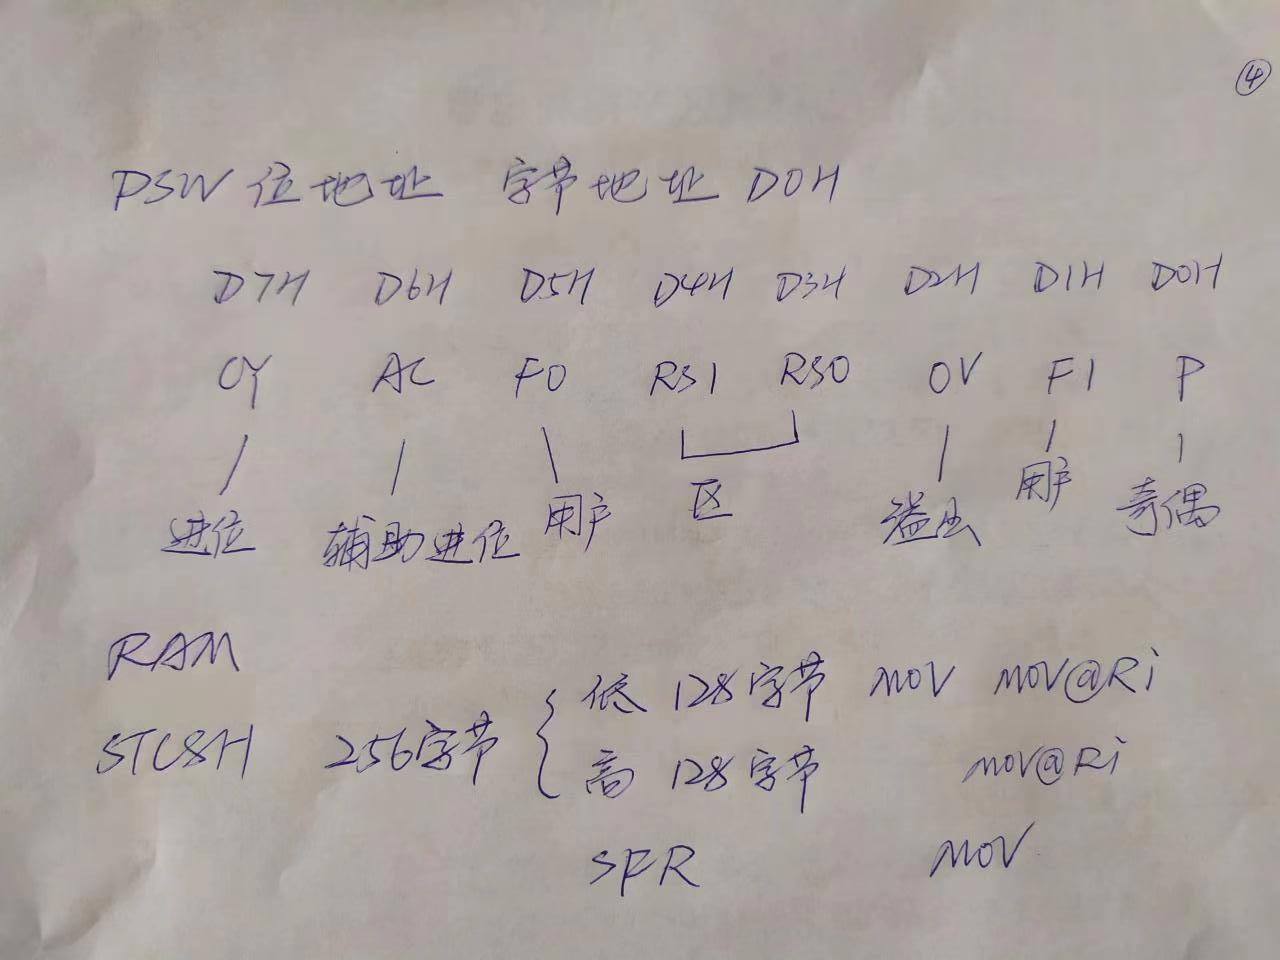 ④
PSW 位地址 字节地址 D0H
D7H D6H D5H D4H D3H D2H D1H D0H
CY AC F0 RS1 RS0 OV F1 P
进位 辅助进位 用户 区 溢出 用户 奇偶
RAM
低 128字节 MOV MOV@Ri
STC8H 256字节
高 128字节 MOV@Ri
SFR MOV